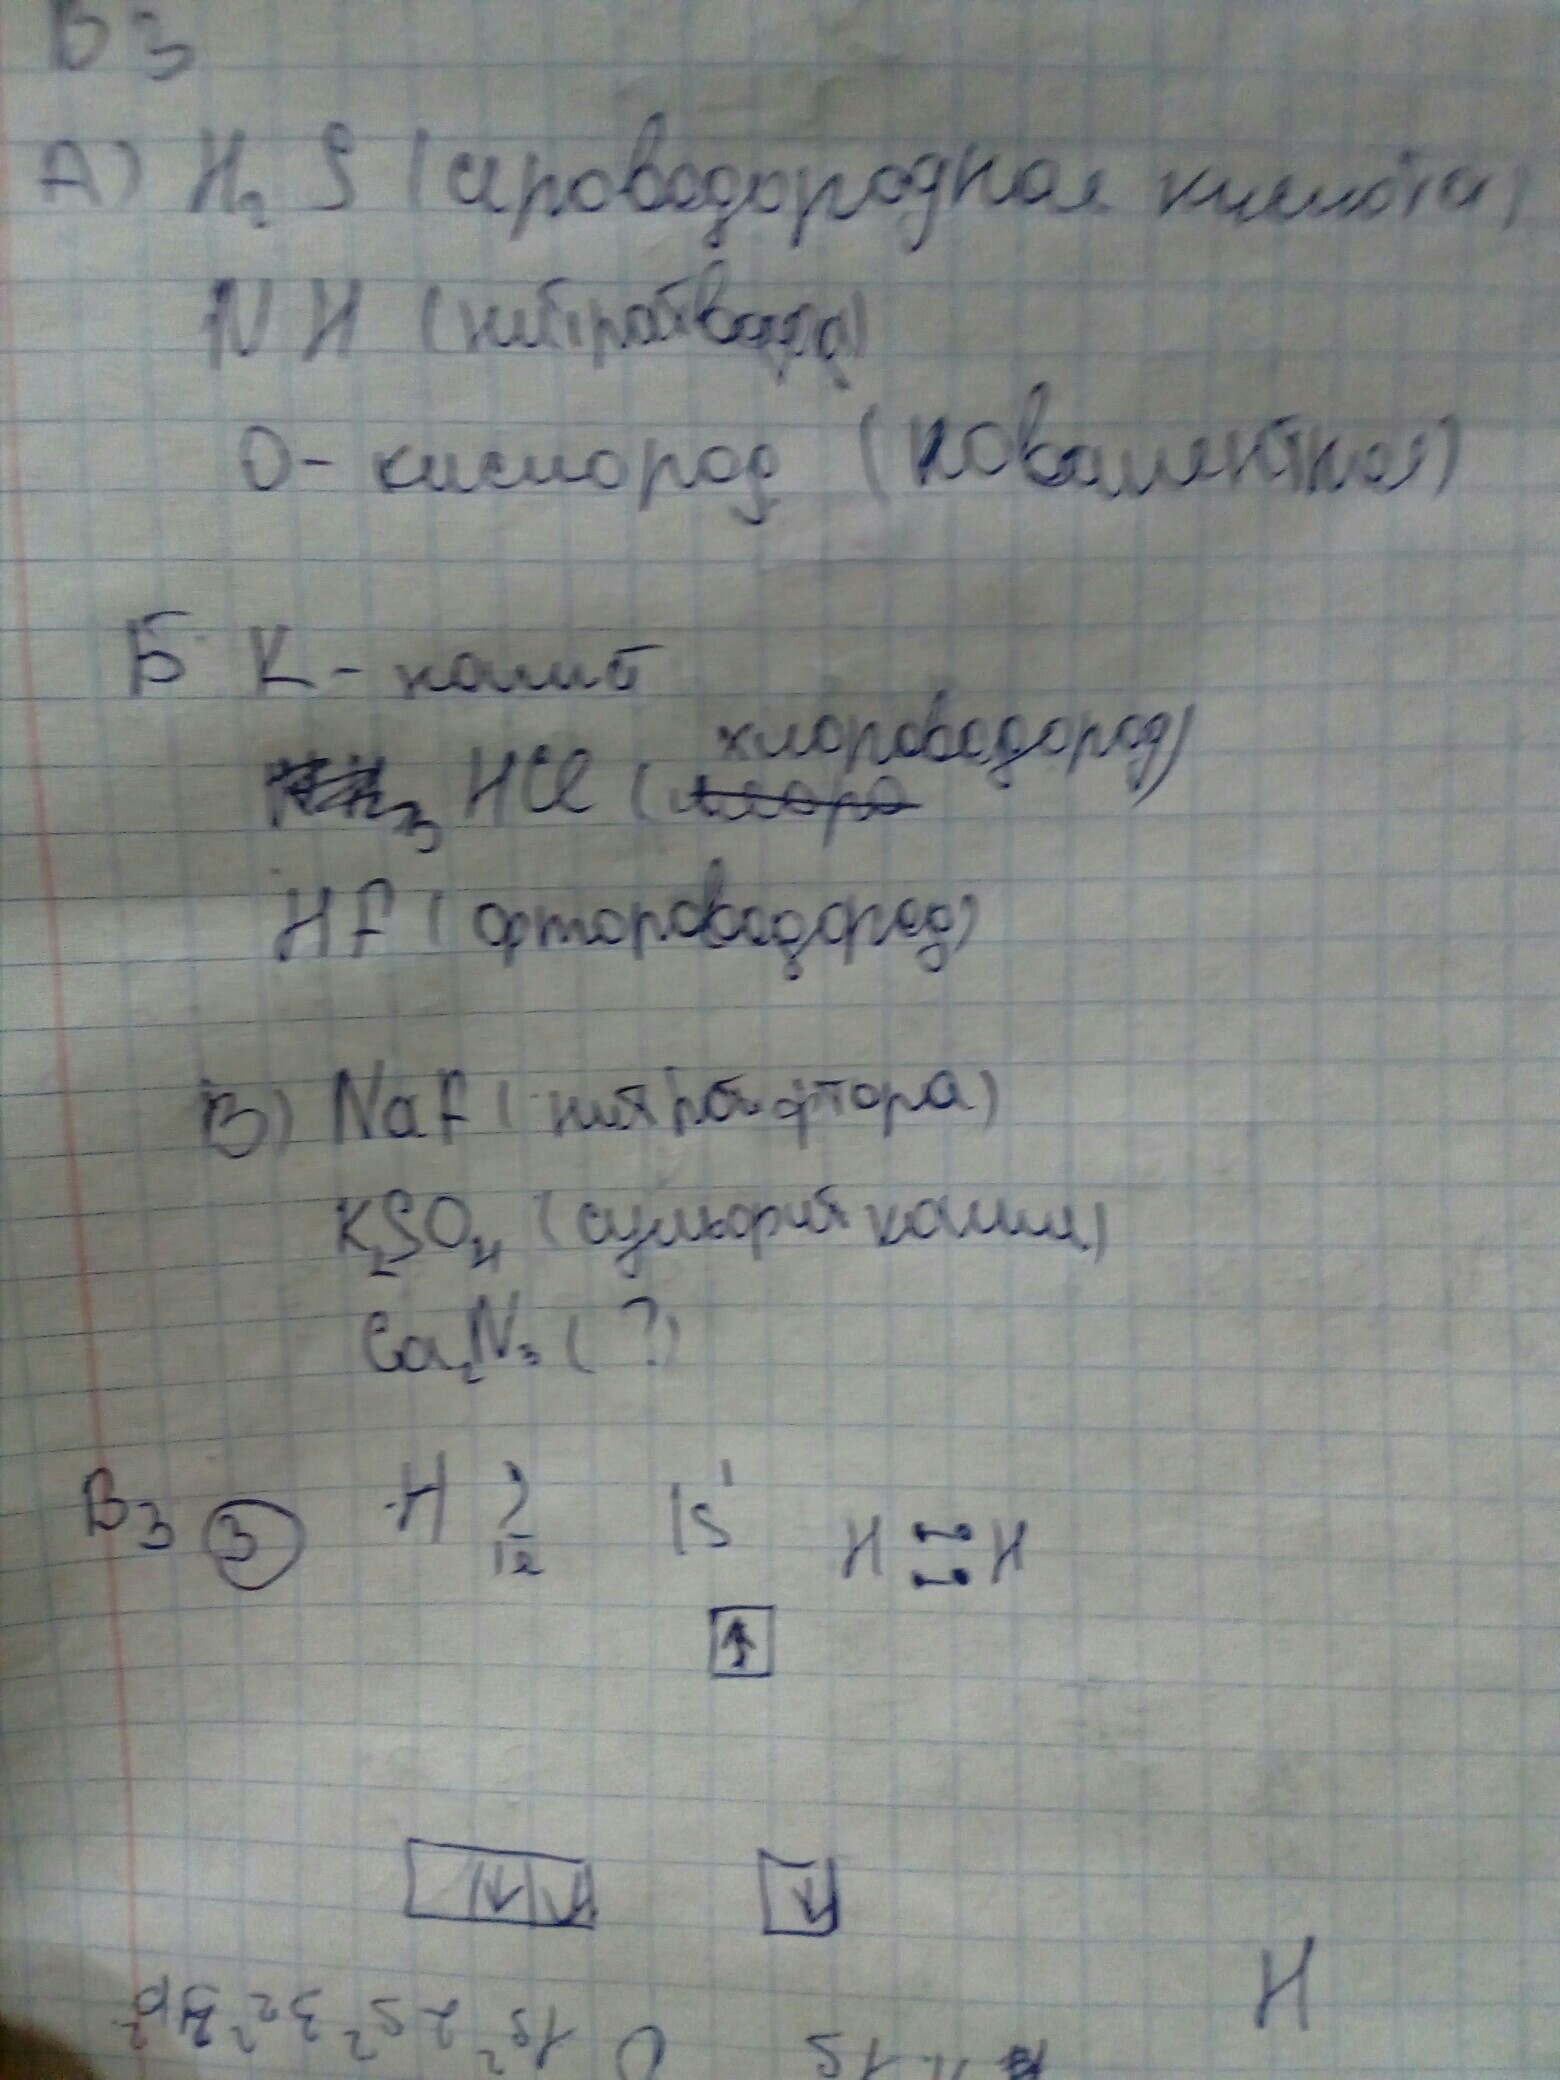 В3
А) H₂S (сероводородная кислота)
NH (нитрат вода)
O - кислород (ковалентная)
Б K - калий
HCl (хлороводород)
HF (фтороводород)
В) NaF (нитрат фтора)
K₂SO₄ (сульфит калия)
Ca₂N₃ (?)
В3 ③ H ) 1s¹ H : H
1ē
↑
↓ ↓ ↓
H
1s² 2s² 3s² 3p²
1s